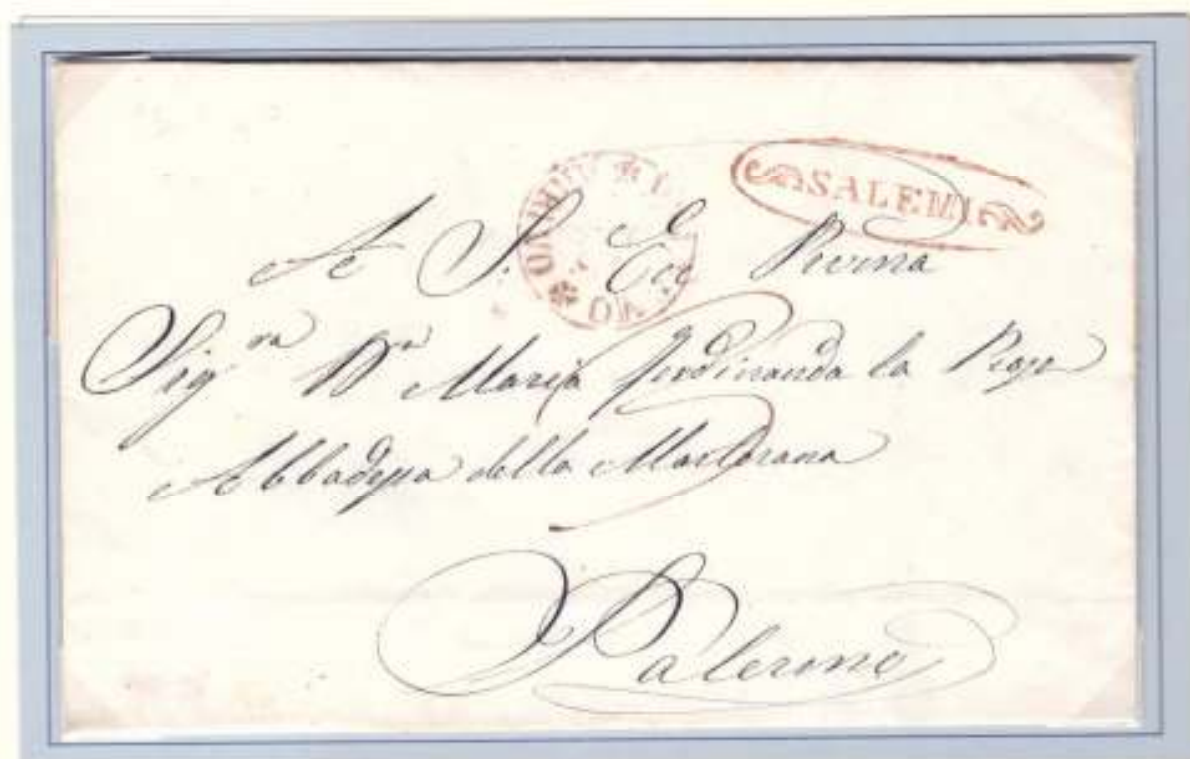 SALEMI
A S. E.
Sig.ra D.na Maria Ferdinanda la
Abbadessa della Martorana
Palermo